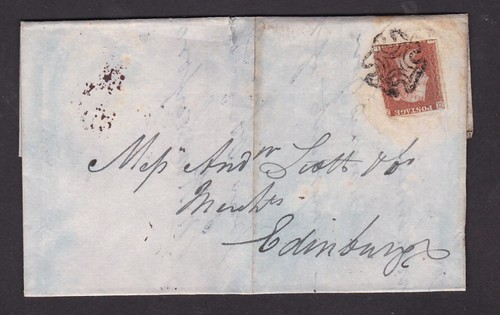 POSTAGE
Messrs Andw Scott & Co
Mercht
Edinburgh